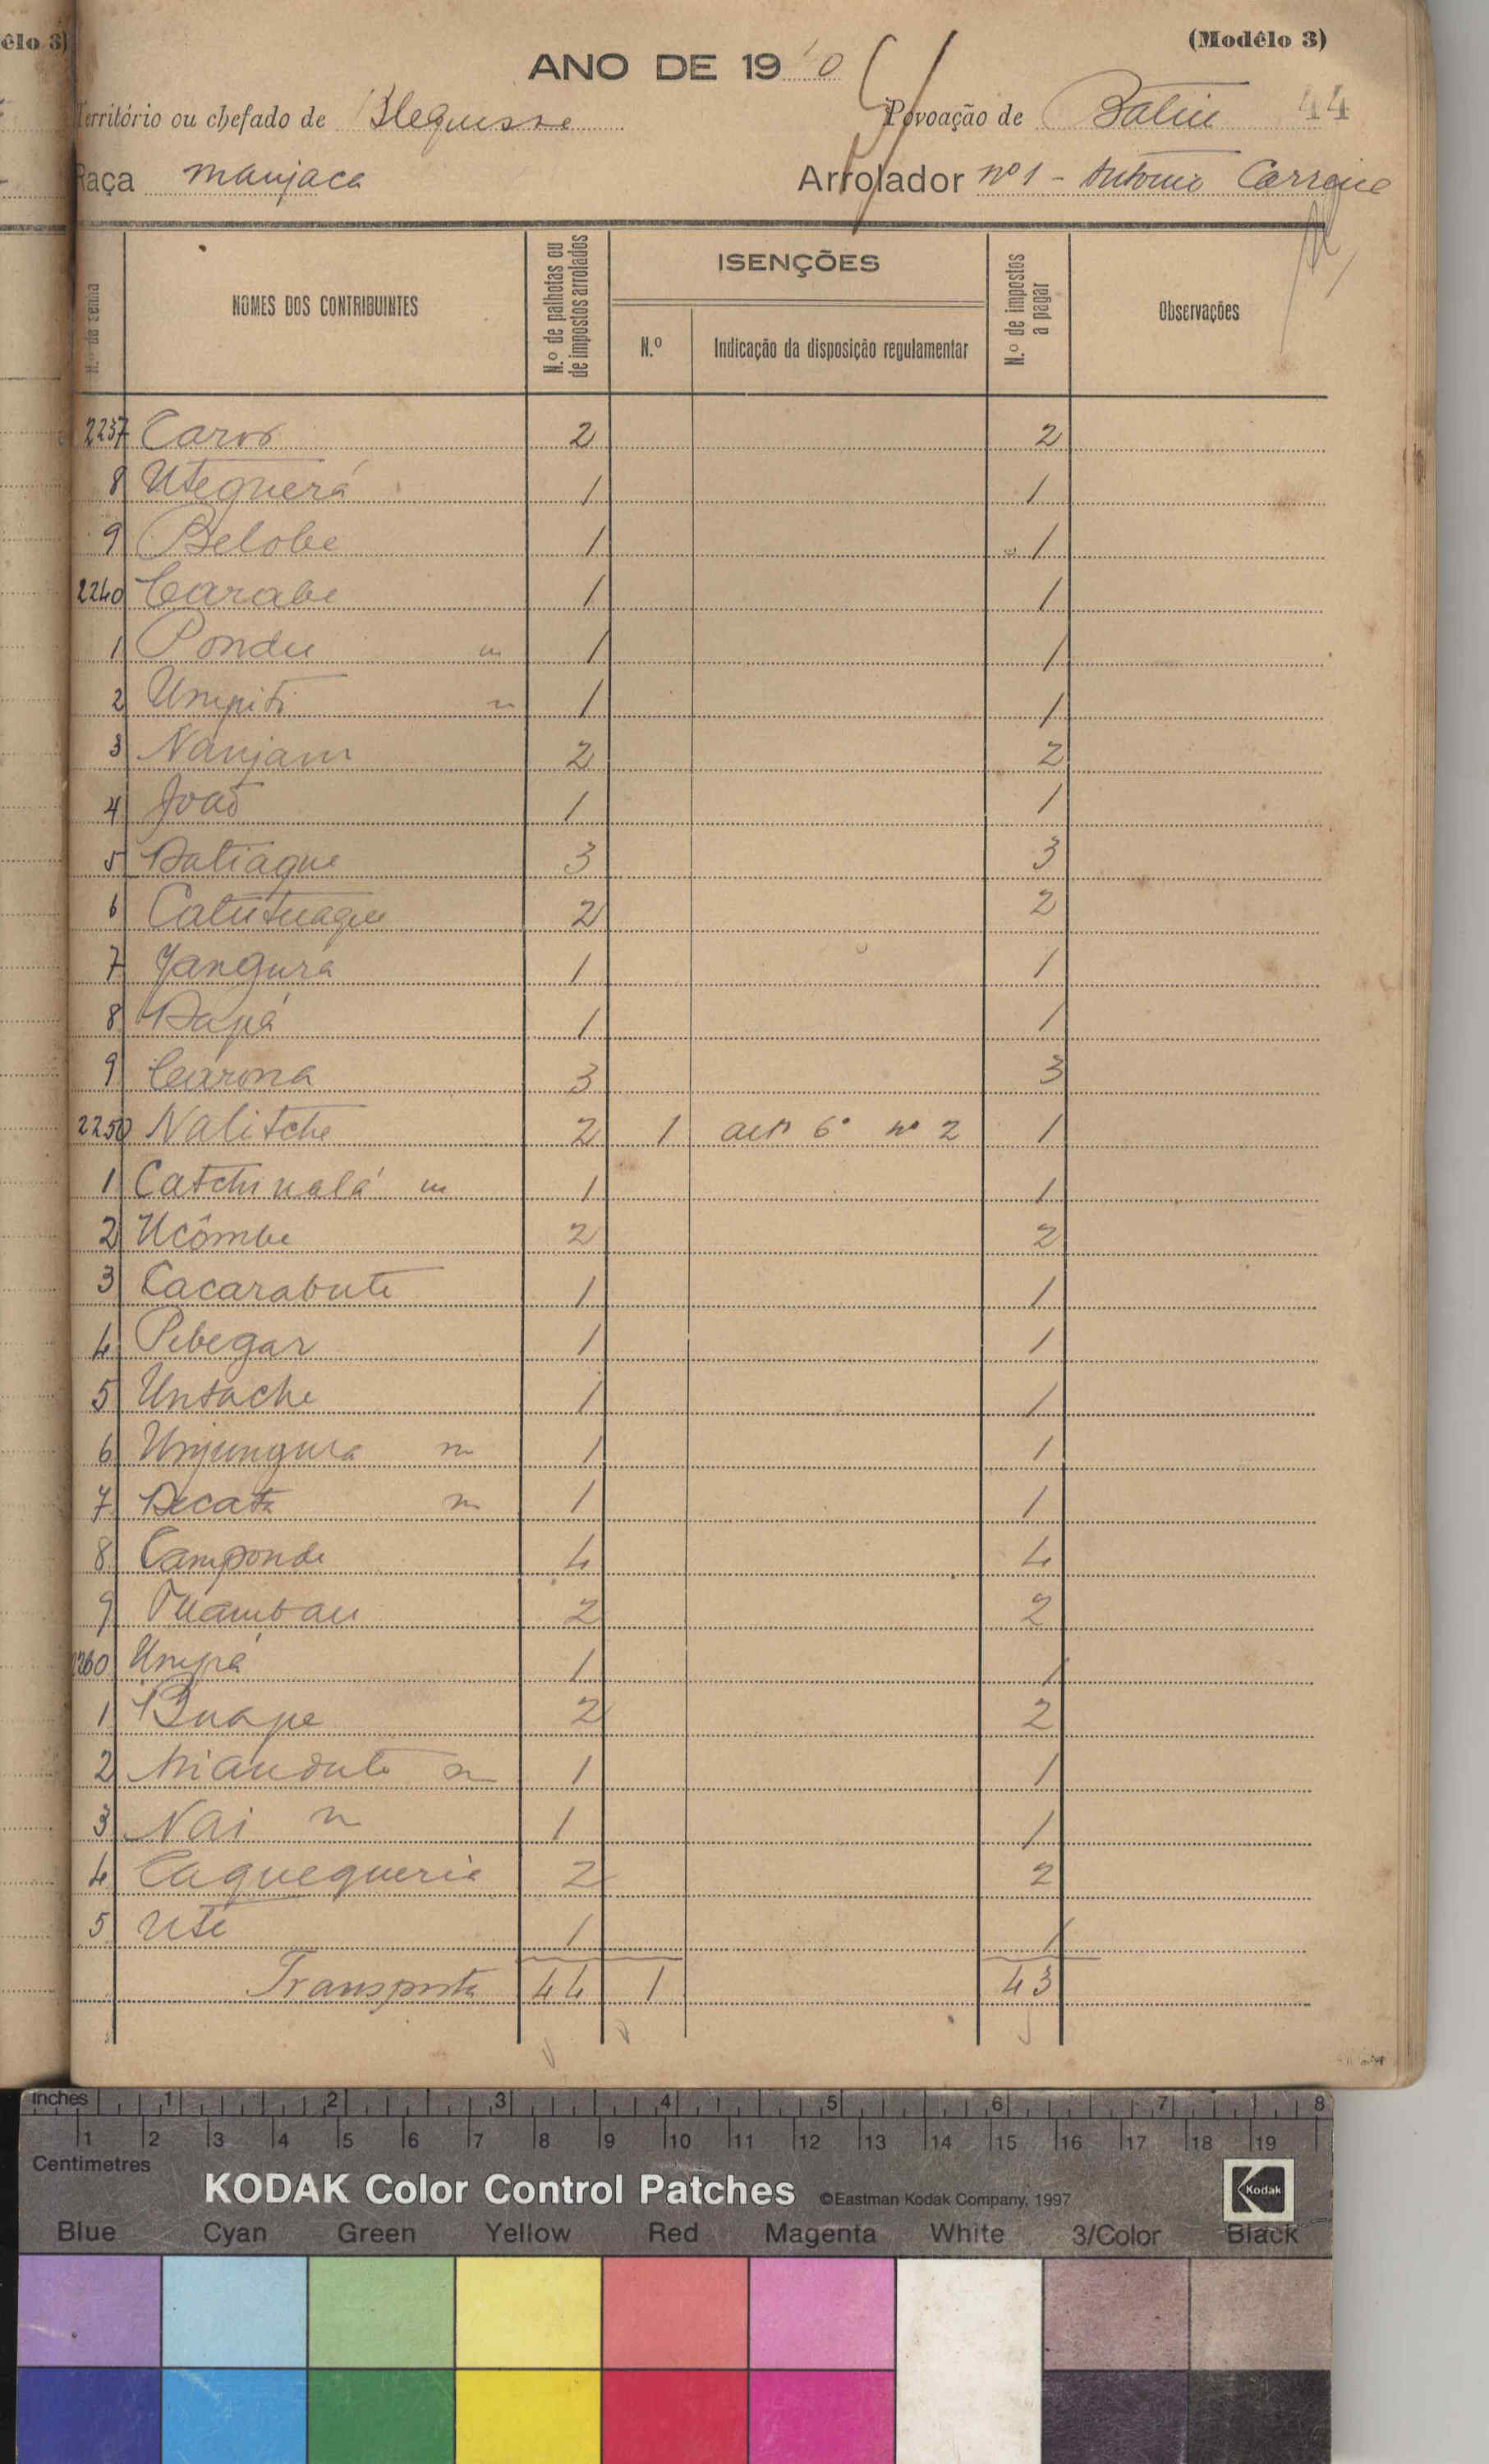 êlo 3)
(Modêlo 3)
ANO DE 19
Território ou chefado de Bleguisse Povoação de 44
Raça manjaca Arrolador nº 1 - Antonio Carreira
N.º da senha
NOMES DOS CONTRIBUINTES
N.º de palhotas ou de impostos arrolados
ISENÇÕES
N.º
Indicação da disposição regulamentar
N.º de impostos a pagar
Observações
2237 Caros 2 2
8 Uteguerá 1 1
9 Belobe 1 1
2240 Carabe 1 1
1 Pondu m 1 1
2 Umpiti m 1 1
3 Nanjam 2 2
4 João 1 1
5 Datiaque 3 3
6 2 2
7 Jangura 1 1
8 Dapá 1 1
9 Carona 3 3
2250 Nalitche 2 1 artº 6º nº 2 1
1 Catchinalá m 1 1
2 Ucômbe 2 2
3 Cacarabute 1 1
4 Pebegar 1 1
5 Untache 1 1
6 Unjungura m 1 1
7 m 1 1
8 Camponde 4 4
9 2 2
2260 Umpá 1 1
1 Buape 2 2
2 m 1 1
3 Nai m 1 1
4 2 2
5 Uté 1 1
Transporte 44 1 43
inches 1 2 3 4 5 6 7 8
1 2 3 4 5 6 7 8 9 10 11 12 13 14 15 16 17 18 19
Centimetres
KODAK Color Control Patches ©Eastman Kodak Company, 1997 Kodak
Blue Cyan Green Yellow Red Magenta White 3/Color Black